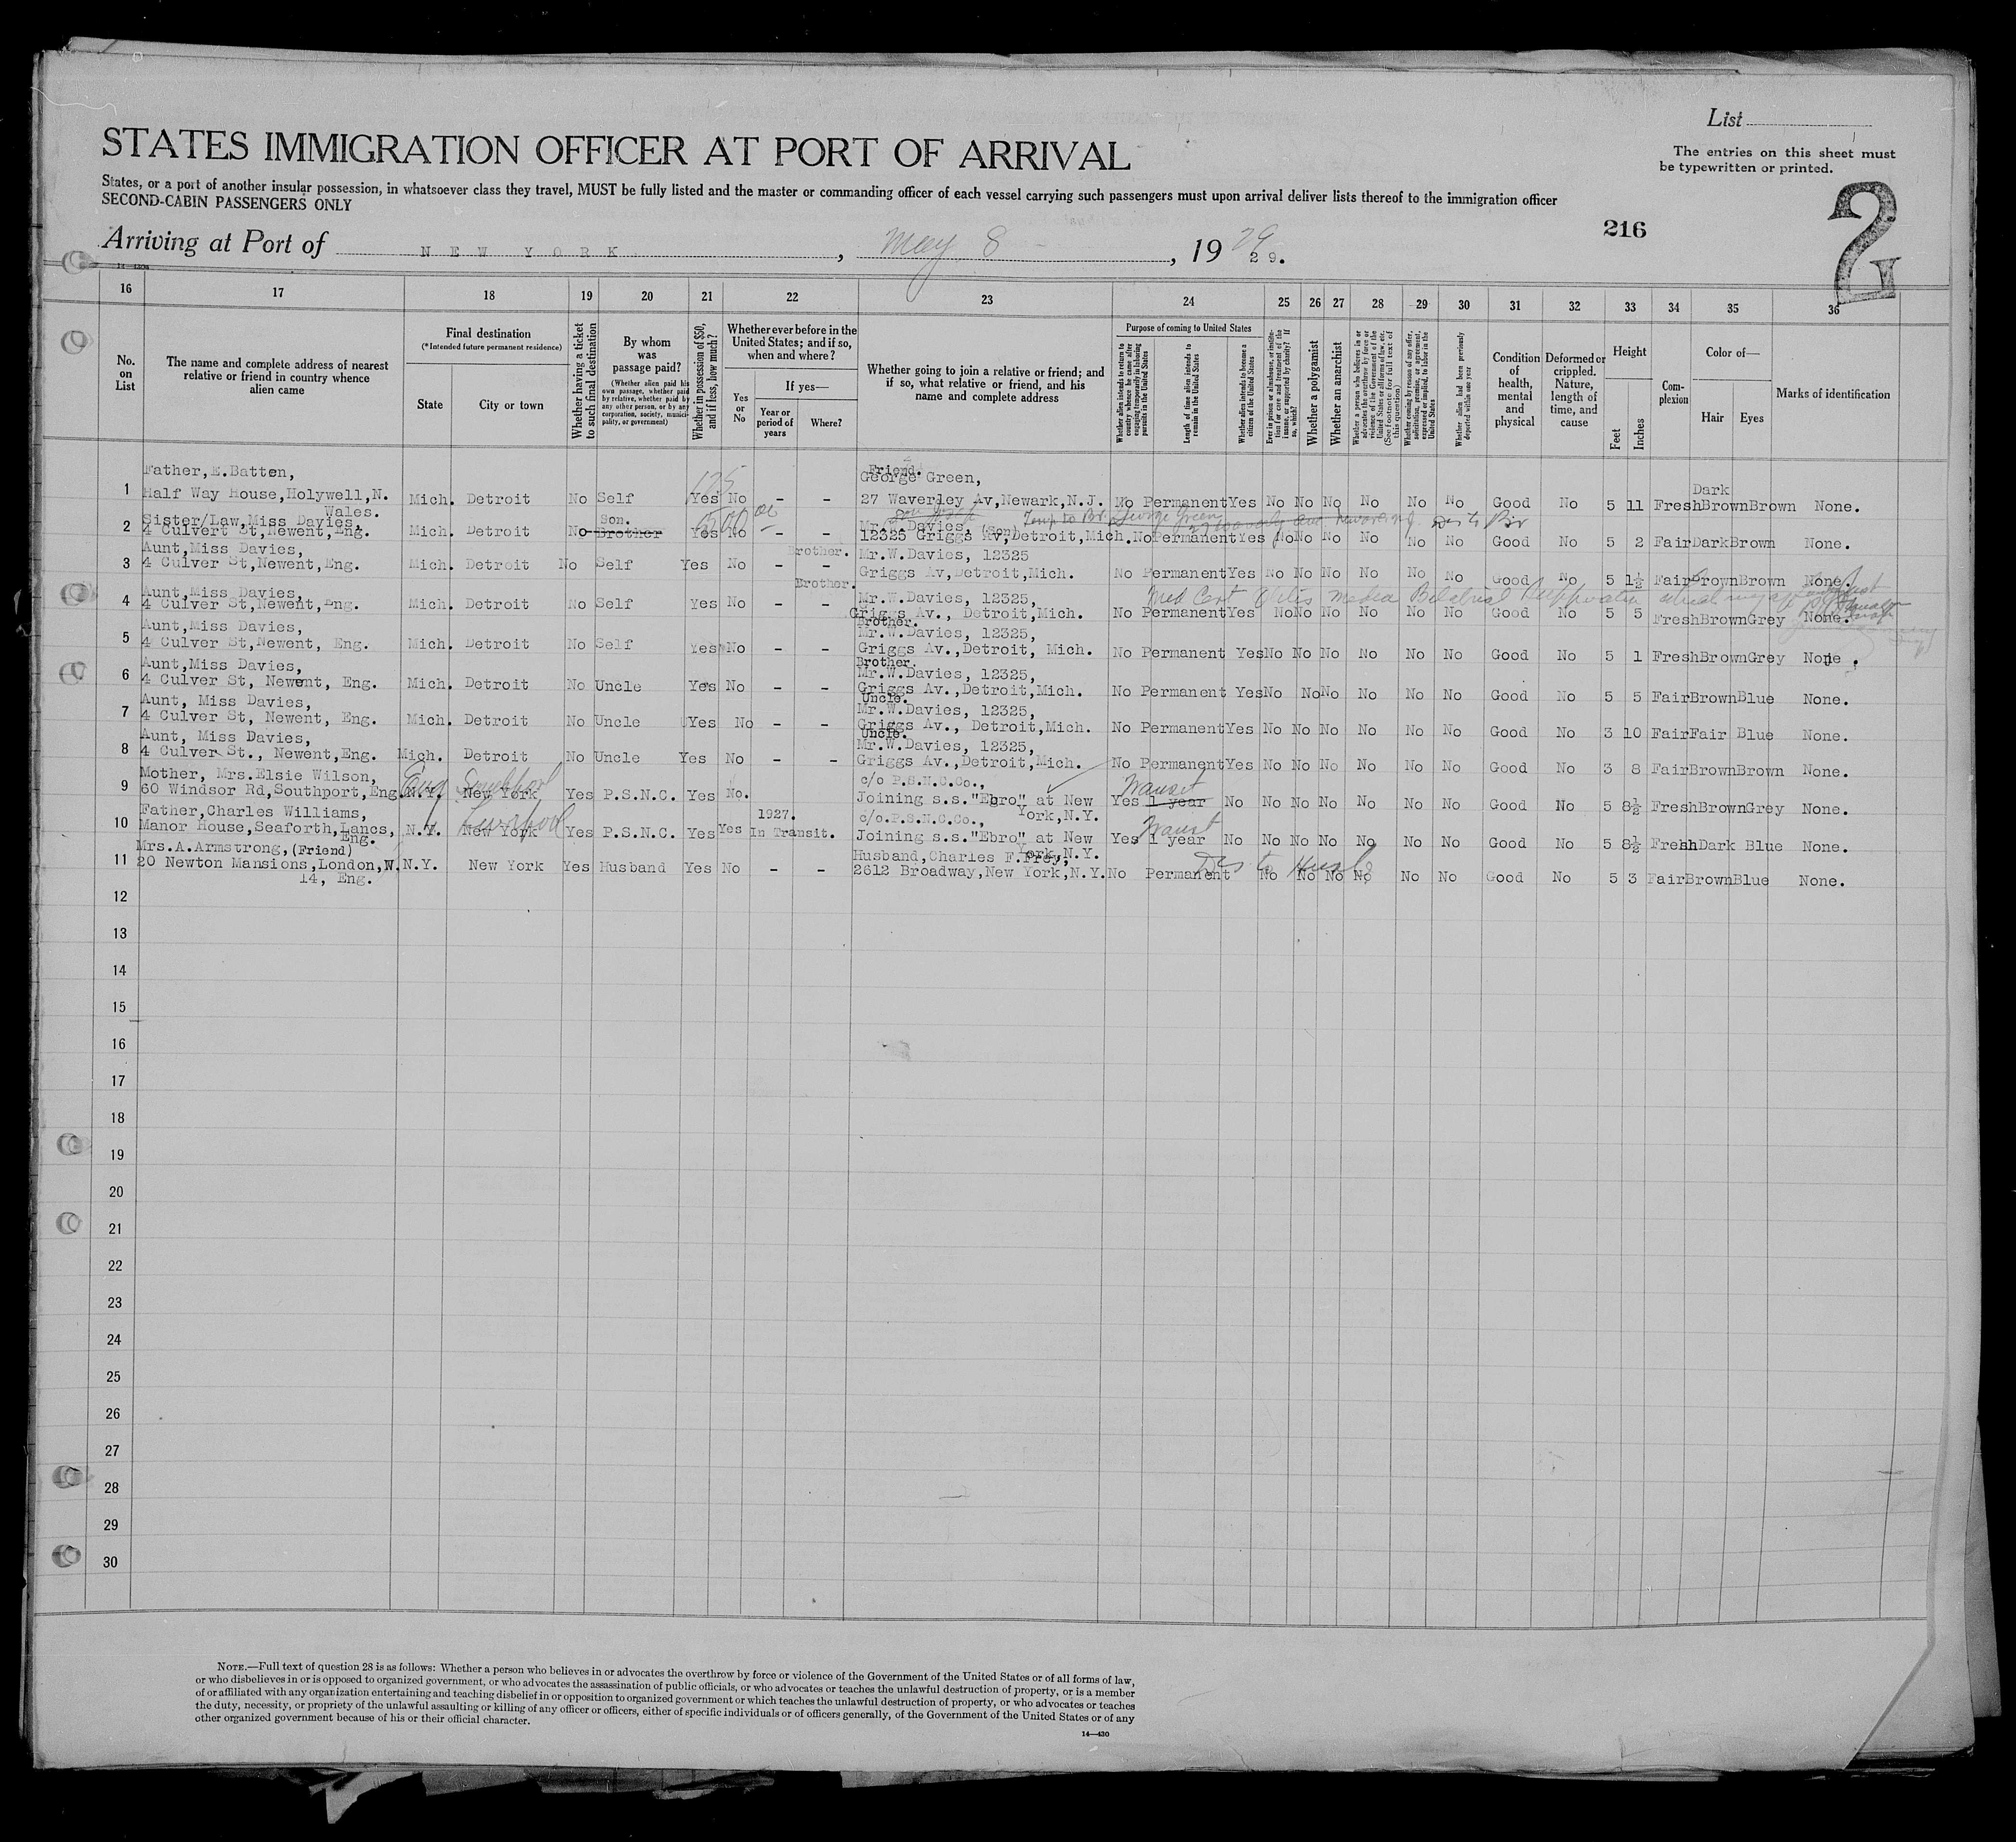 List
STATES IMMIGRATION OFFICER AT PORT OF ARRIVAL
The entries on this sheet must
be typewritten or printed.
States, or a port of another insular possession, in whatsoever class they travel, MUST be fully listed and the master or commanding officer of each vessel carrying such passengers must upon arrival deliver lists thereof to the immigration officer
SECOND-CABIN PASSENGERS ONLY
216
2
Arriving at Port of NEW YORK, May 8, 19 29 29.
14—430a
16 17 18 19 20 21 22 23 24 25 26 27 28 29 30 31 32 33 34 35 36
No. on List
The name and complete address of nearest relative or friend in country whence alien came
Final destination
(*Intended future permanent residence)
State
City or town
Whether having a ticket to such final destination
By whom was passage paid?
(Whether alien paid his own passage, whether paid by relative, whether paid by any other person, or by any corporation, society, municipality, or government)
Whether in possession of $50, and if less, how much?
Whether ever before in the United States; and if so, when and where?
Yes or No
If yes—
Year or period of years
Where?
Whether going to join a relative or friend; and if so, what relative or friend, and his name and complete address
Purpose of coming to United States
Whether alien intends to return to country whence he came after engaging temporarily in laboring pursuits in the United States
Length of time alien intends to remain in the United States
Whether alien intends to become a citizen of the United States
Ever in prison or almshouse, or institution for care and treatment of the insane, or supported by charity? If so, which?
Whether a polygamist
Whether an anarchist
Whether a person who believes in or advocates the overthrow by force or violence of the Government of the United States or all forms of law, etc. (See footnote for full text of this question)
Whether coming by reason of any offer, solicitation, promise, or agreement, expressed or implied, to labor in the United States
Whether alien had been previously deported within one year
Condition of health, mental and physical
Deformed or crippled. Nature, length of time, and cause
Height
Feet
Inches
Complexion
Color of—
Hair
Eyes
Marks of identification
Father, E.Batten, 125 Friend. George Green,
1 Half Way House, Holywell, N. Wales. Mich. Detroit No Self Yes No - - 27 Waverley Av, Newark, N.J. No Permanent Yes No No No No No No Good No 5 11 Fresh Dark Brown Brown None.
Sister/Law, Miss Davies, Son. 1500 00 Mr. Davies, (Son) Temp to Bd. George Green
2 4 Culvert St, Newent, Eng. Mich. Detroit No Brother Yes No - - 12325 Griggs Av, Detroit, Mich. No Permanent Yes No No No No No No Good No 5 2 Fair Dark Brown None.
Aunt, Miss Davies, Brother. Mr.W.Davies, 12325
3 4 Culver St, Newent, Eng. Mich. Detroit No Self Yes No - - Griggs Av, Detroit, Mich. No Permanent Yes No No No No No No Good No 5 1½ Fair Brown Brown None.
Aunt, Miss Davies, Brother. Mr.W.Davies, 12325, Med Cert Otitis media Bilateral
4 4 Culver St, Newent, Eng. Mich. Detroit No Self Yes No - - Griggs Av., Detroit, Mich. No Permanent Yes No No No No No No Good No 5 5 Fresh Brown Grey None.
Aunt, Miss Davies, Brother. Mr.W.Davies, 12325,
5 4 Culver St, Newent, Eng. Mich. Detroit No Self Yes No - - Griggs Av., Detroit, Mich. No Permanent Yes No No No No No No Good No 5 1 Fresh Brown Grey None.
Aunt, Miss Davies, Brother. Mr.W.Davies, 12325,
6 4 Culver St, Newent, Eng. Mich. Detroit No Uncle Yes No - - Griggs Av., Detroit, Mich. No Permanent Yes No No No No No No Good No 5 5 Fair Brown Blue None.
Aunt, Miss Davies, Uncle. Mr.W.Davies, 12325,
7 4 Culver St, Newent, Eng. Mich. Detroit No Uncle Yes No - - Griggs Av., Detroit, Mich. No Permanent Yes No No No No No No Good No 3 10 Fair Fair Blue None.
Aunt, Miss Davies, Uncle. Mr.W.Davies, 12325,
8 4 Culver St., Newent, Eng. Mich. Detroit No Uncle Yes No - - Griggs Av., Detroit, Mich. No Permanent Yes No No No No No No Good No 3 8 Fair Brown Brown None.
Mother, Mrs.Elsie Wilson, Eng Southport c/o P.S.N.C.Co., Transit
9 60 Windsor Rd, Southport, Eng. N.Y. New York Yes P.S.N.C. Yes No. Joining s.s."Ebro" at New York, N.Y. Yes 1 year No No No No No No No Good No 5 8½ Fresh Brown Grey None.
Father, Charles Williams, Liverpool 1927. c/o.P.S.N.C.Co., Transit
10 Manor House, Seaforth, Lancs, Eng. N.Y. New York Yes P.S.N.C. Yes Yes In Transit. Joining s.s."Ebro" at New York, N.Y. Yes 1 year No No No No No No No Good No 5 8½ Fresh Dark Blue None.
Mrs.A.Armstrong, (Friend) Husband, Charles F.Frey, Des to Husb
11 20 Newton Mansions, London, W. 14, Eng. N.Y. New York Yes Husband Yes No - - 2612 Broadway, New York, N.Y. No Permanent No No No No No No Good No 5 3 Fair Brown Blue None.
12
13
14
15
16
17
18
19
20
21
22
23
24
25
26
27
28
29
30
NOTE.—Full text of question 28 is as follows: Whether a person who believes in or advocates the overthrow by force or violence of the Government of the United States or of all forms of law,
or who disbelieves in or is opposed to organized government, or who advocates the assassination of public officials, or who advocates or teaches the unlawful destruction of property, or is a member
of or affiliated with any organization entertaining and teaching disbelief in or opposition to organized government or which teaches the unlawful destruction of property, or who advocates or teaches
the duty, necessity, or propriety of the unlawful assaulting or killing of any officer or officers, either of specific individuals or of officers generally, of the Government of the United States or of any
other organized government because of his or their official character.
14—430